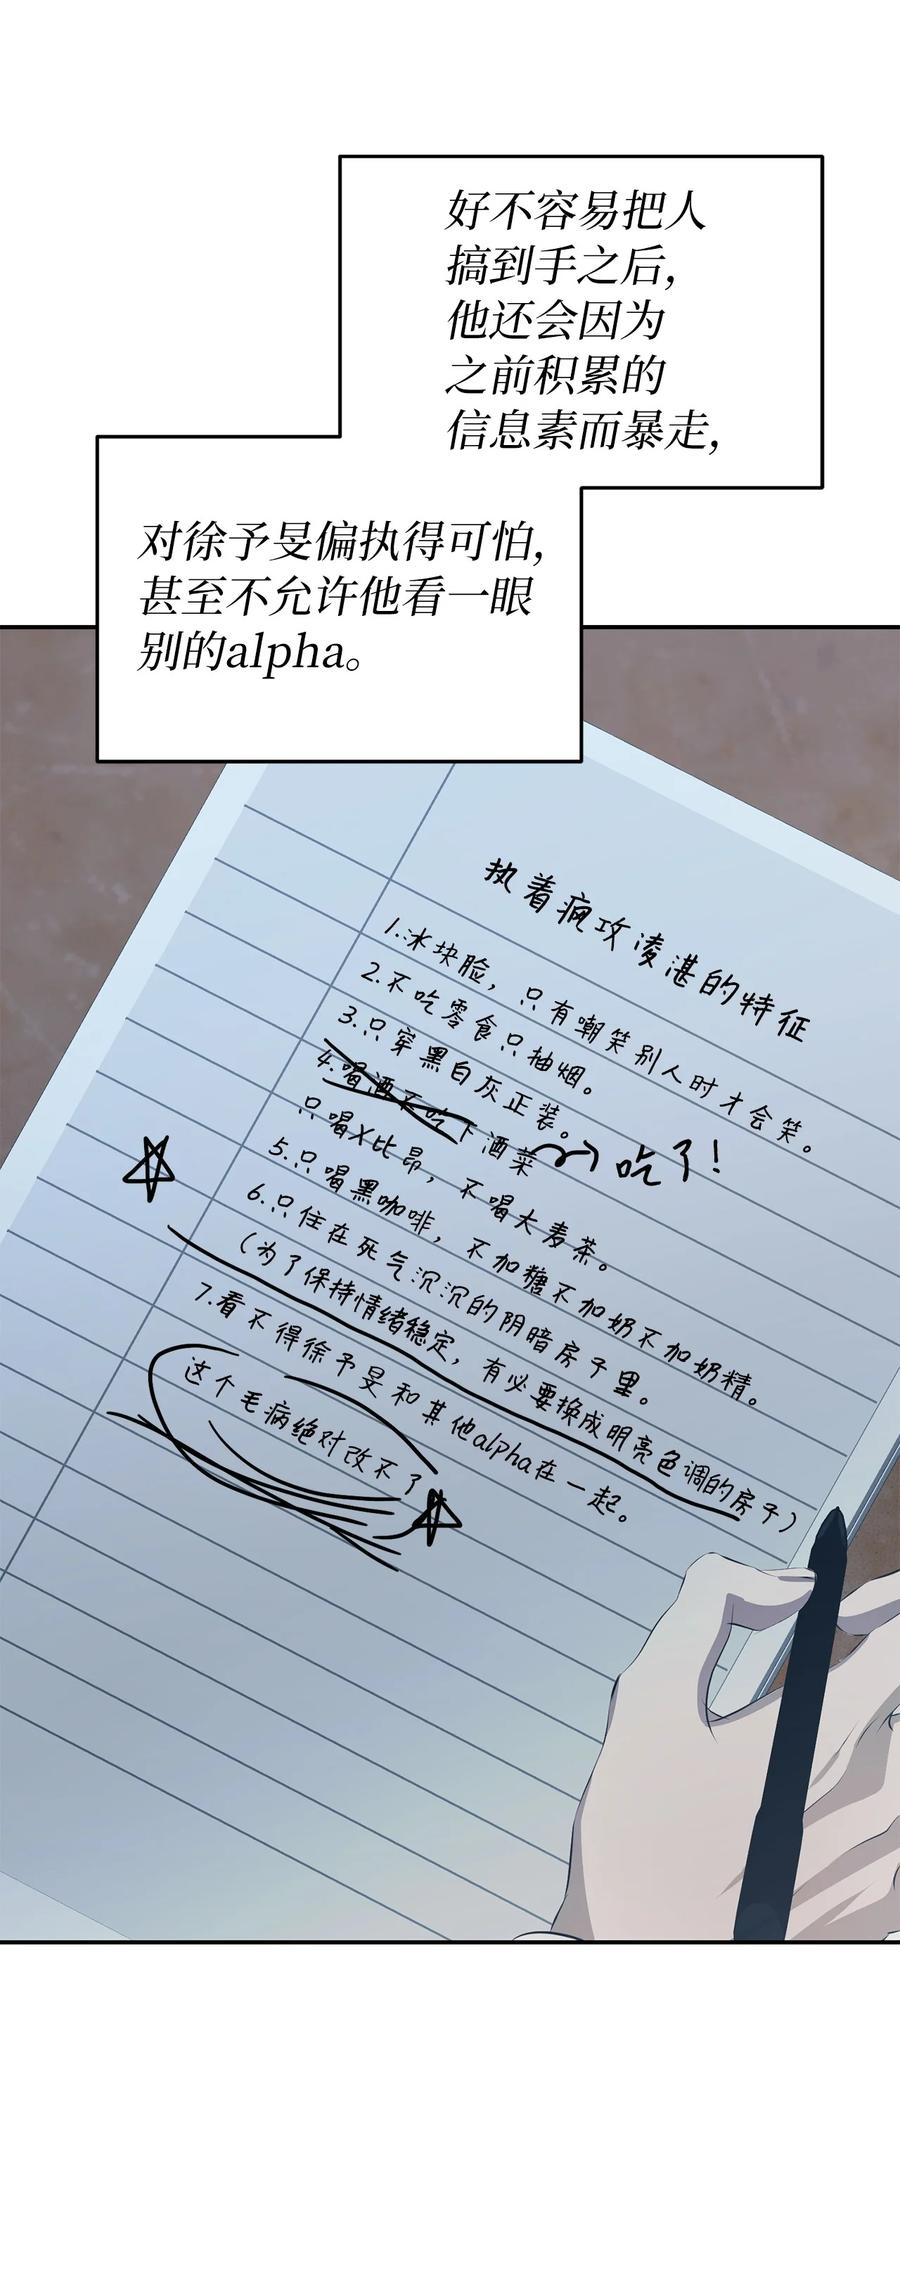 好不容易把人
搞到手之后,
他还会因为
之前积累的
信息素而暴走,
对徐予旻偏执得可怕,
甚至不允许他看一眼
别的alpha。
执着疯攻凌湛的特征
1.冰块脸，只有嘲笑别人时才会笑。
2.不吃零食只抽烟。
3.只穿黑白灰正装。
4.喝酒不吃下酒菜 → 吃了!
只喝X比昂，不喝大麦茶。
5.只喝黑咖啡，不加糖不加奶不加奶精。
6.只住在死气沉沉的阴暗房子里。
(为了保持情绪稳定，有必要换成明亮色调的房子)
7.看不得徐予旻和其他alpha在一起。
这个毛病绝对改不了